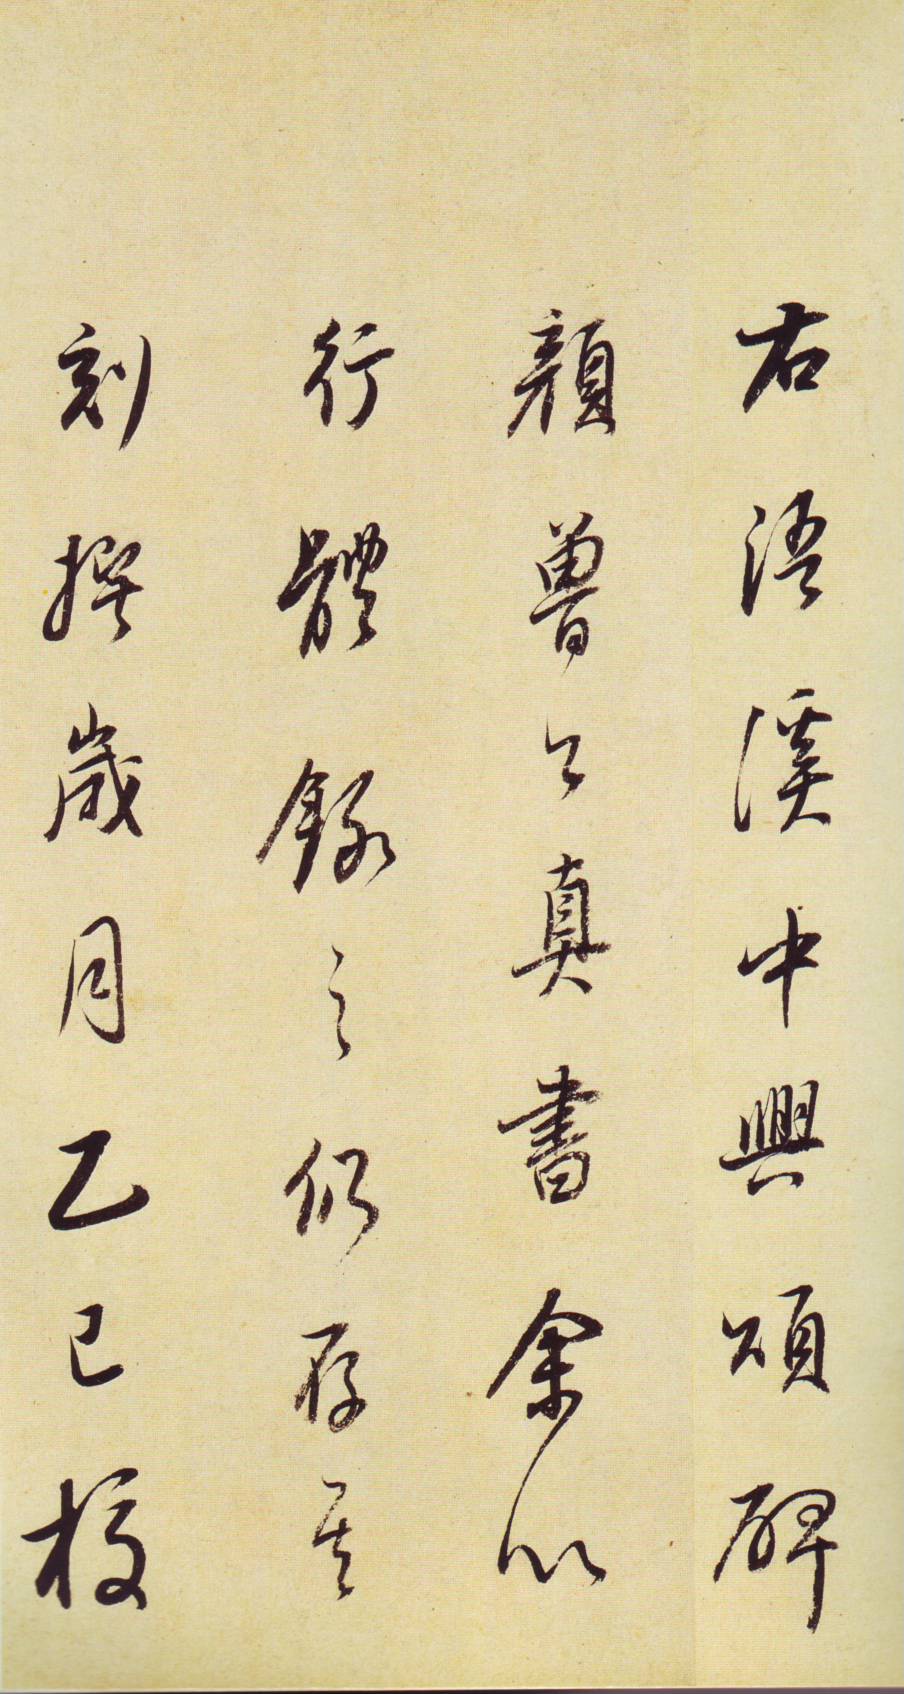 右浯溪中興頌碑
顏魯公真書余以
行體錄之仍存其
刻撰歲月乙巳校